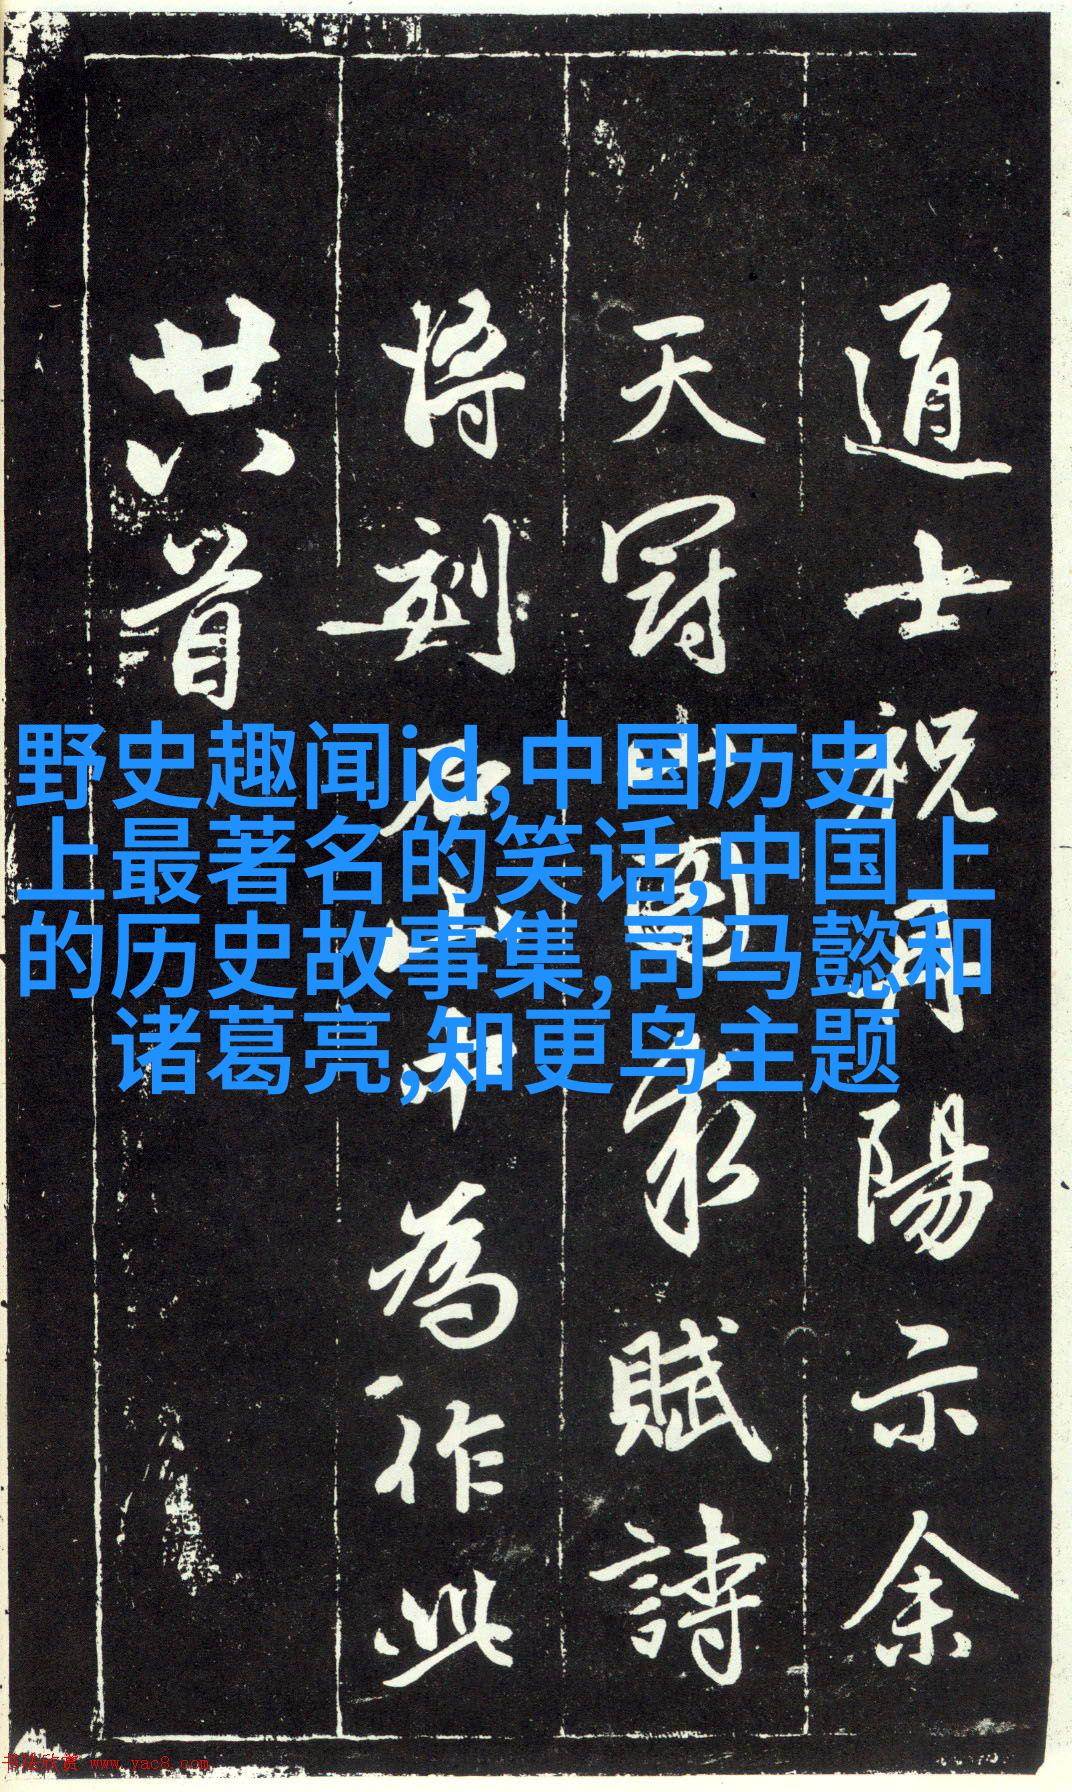 道士祝丹陽示余
天冠山圖求賦詩
将刻石山中為作此
廿八首
野史趣闻id,中国历史
上最著名的笑话,中国上
的历史故事集,司马懿和
诸葛亮,知更鸟主题
书法欣赏 www.yac8.com